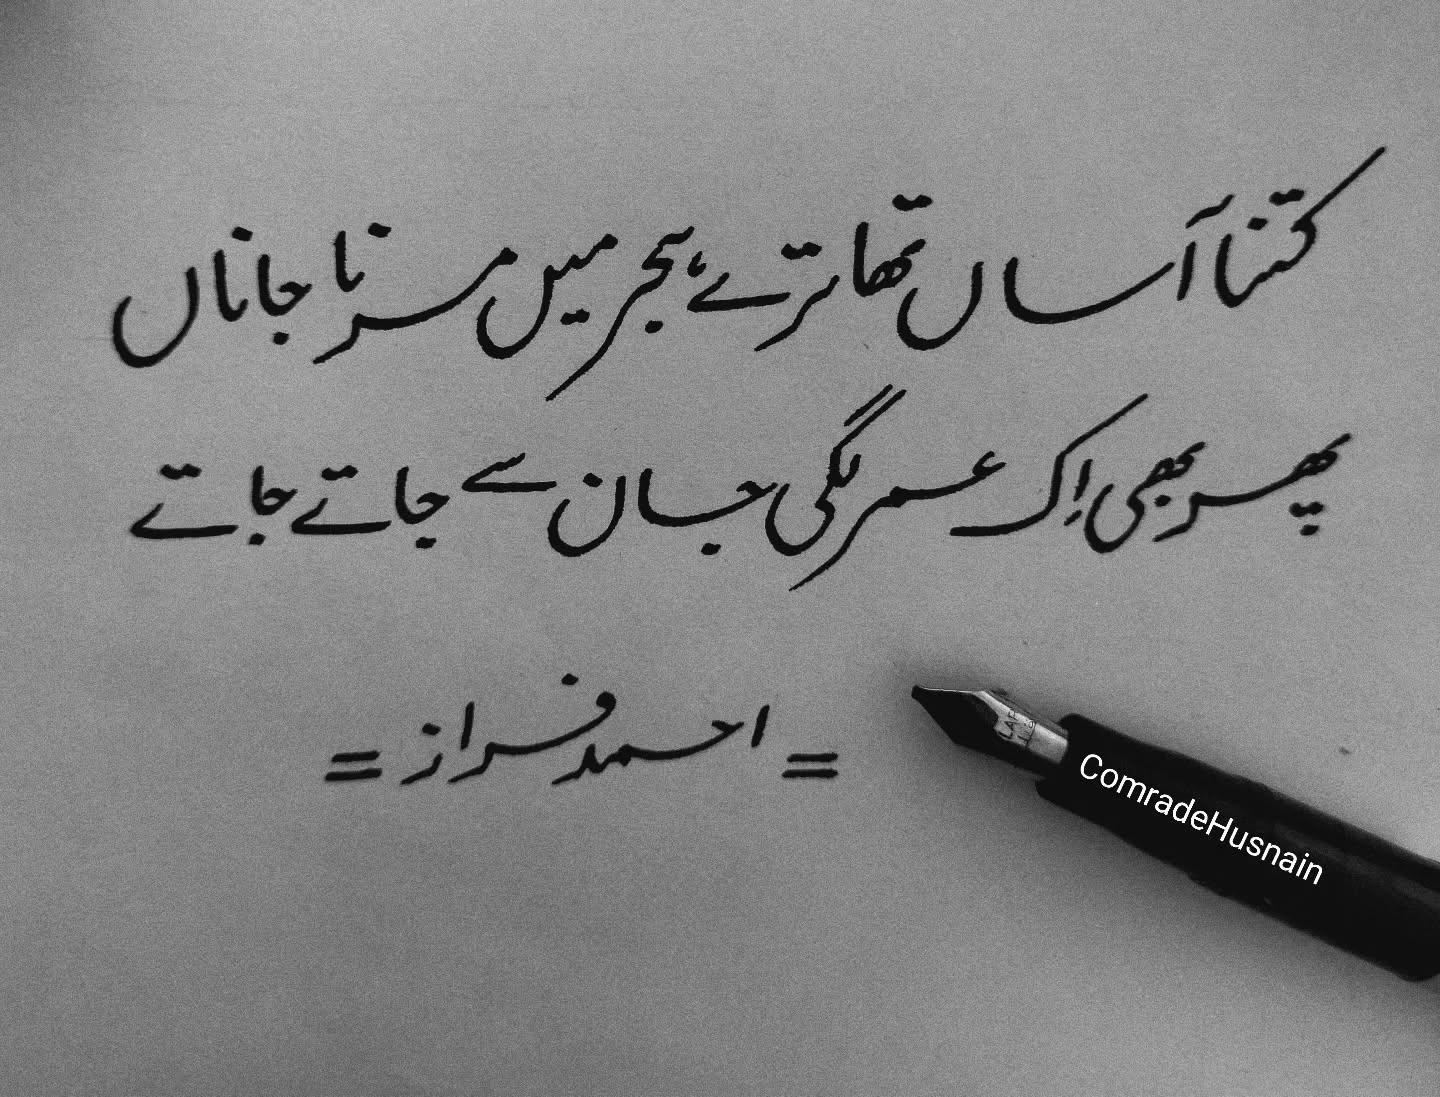 کتنا آساں تھا ترے ہجر میں مرنا جاناں
پھر بھی اِک عمر لگی جان سے جاتے جاتے
= احمد فراز =
ComradeHusnain